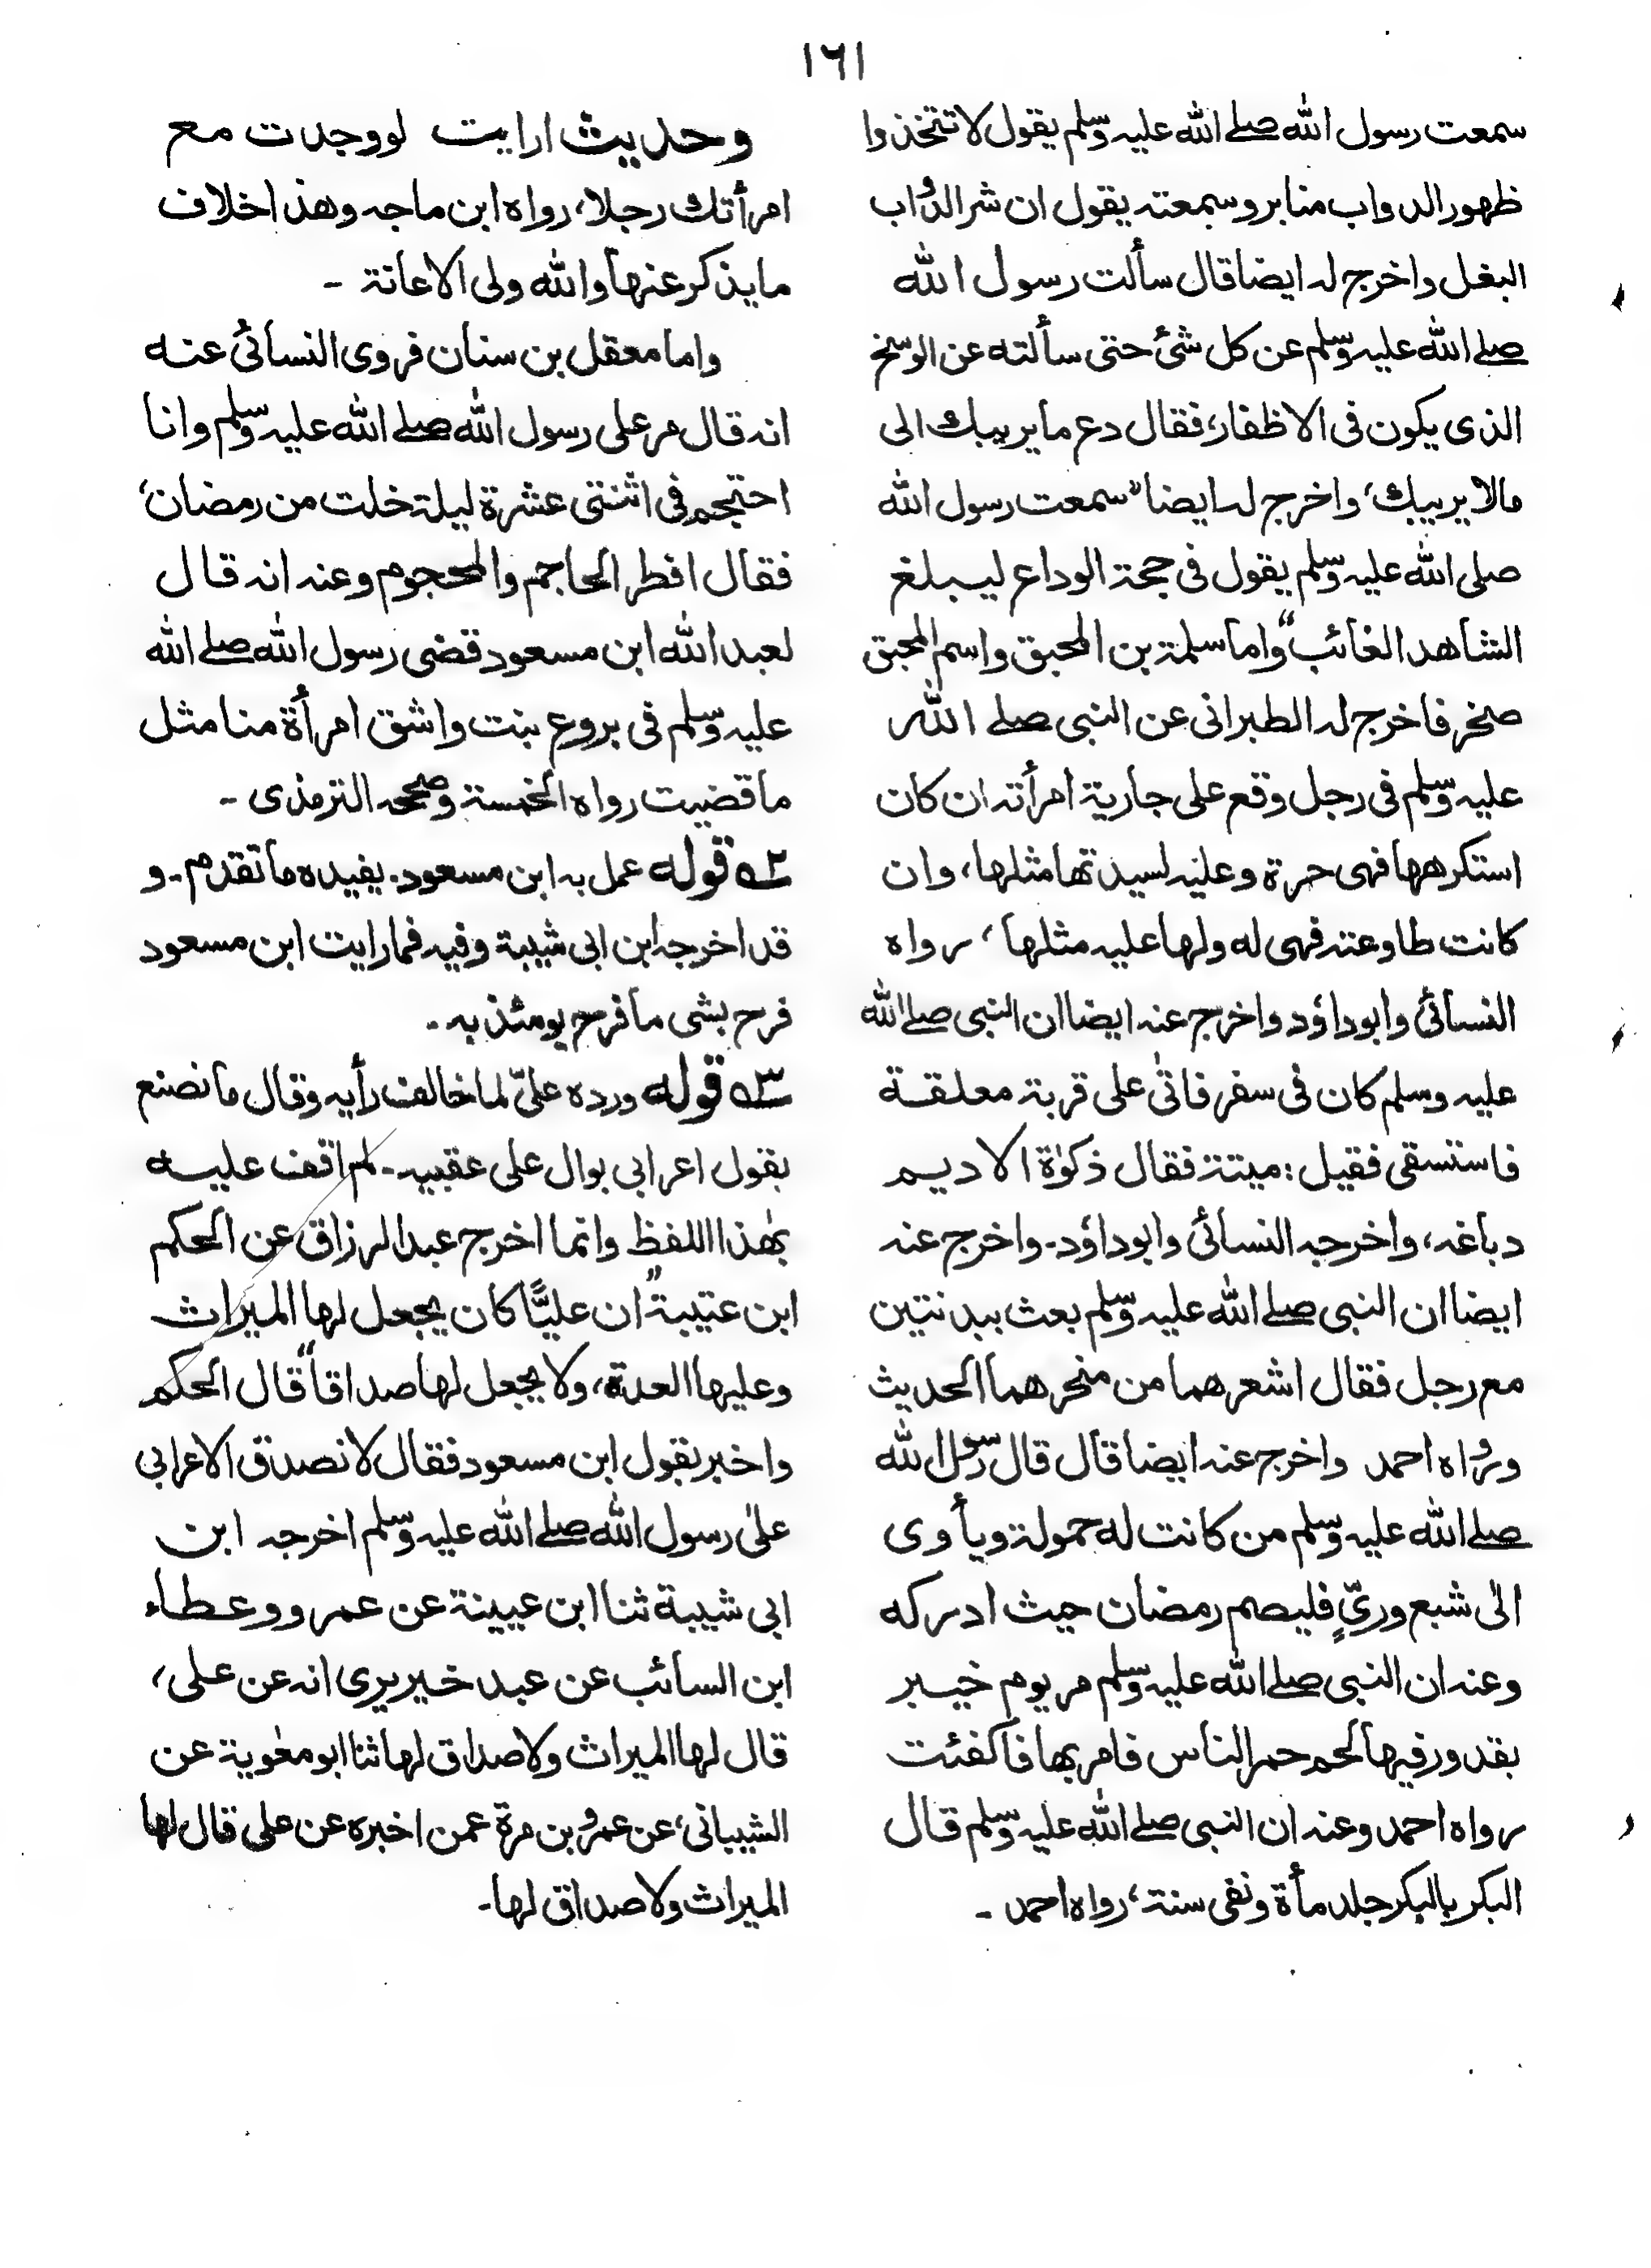 ١٦١
سمعت رسول الله صلے الله عليہ وسلم يقول لا تتخذوا
ظهور الدواب منابر وسمعتہ يقول ان شر الدواب
البغل واخرج لہ ايضا قال سألت رسول الله
صلے الله عليہ وسلم عن كل شئ حتى سألته عن الوسخ
الذى يكون فى الاظفار، فقال دع ما يريبك الى
مالا يريبك، واخرج لہ ايضا "سمعت رسول الله
صلى الله عليہ وسلم يقول فى حجة الوداع ليبلغ
الشاهد الغائب" واما سلمة بن المحبق واسم المحبق
صخر فاخرج لہ الطبرانى عن النبى صلے الله
عليہ وسلم فى رجل وقع على جارية امرأتہ ان كان
استكرهها فهى حرة وعليہ لسيدتها مثلها، وان
كانت طاوعتہ فهى له ولها عليہ مثلها، رواه
النسائى وابوداؤد واخرج عنہ ايضا ان النبى صلے الله
عليہ وسلم كان فى سفر فاتىٰ على قربة معلقة
فاستسقى فقيل: ميتة فقال ذكوٰة الاديم
دباغہ، واخرجہ النسائى وابوداؤد۔ واخرج عنہ
ايضا ان النبى صلے الله عليہ وسلم بعث ببدنتين
مع رجل فقال اشعرهما من منحرهما الحديث
ورواه احمد واخرج عنہ ايضا قال قال رسول الله
صلے الله عليہ وسلم من كانت له حمولة ويأوى
الىٰ شبع وريٍّ فليصم رمضان حيث ادركه
وعنہ ان النبى صلے الله عليہ وسلم مر يوم خيبر
بقدور فيها لحم حمر الناس فامر بها فاكفئت
رواه احمد وعنہ ان النبى صلے الله عليہ وسلم قال
البكر بالبكر جلد مأة ونفى سنة، رواه احمد ۔
وحديث ارايت لو وجدت مع
امرأتك رجلا، رواه ابن ماجہ وهذا خلاف
ما يذكر عنها والله ولى الاعانة ۔
واما معقل بن سنان فروى النسائى عنه
انہ قال مر على رسول الله صلے الله عليہ وسلم وانا
احتجم فى اثنتى عشرة ليلة خلت من رمضان،
فقال افطر الحاجم والمحجوم وعنہ انہ قال
لعبد الله ابن مسعود قضى رسول الله صلے الله
عليہ وسلم فى بروع بنت واشق امرأة منا مثل
ما قضيت رواه الخمسة وصححہ الترمذى ۔
٢ہ قولہ عمل بہ ابن مسعود۔ يفيده ما تقدم۔ و
قد اخرجہ ابن ابى شيبة وفيہ فما رايت ابن مسعود
فرح بشى ما فرح يومئذ بہ ۔
٣ہ قولہ ورده علىّ لما خالف رأيہ وقال ما نصنع
بقول اعرابى بوال على عقبيہ۔ لم اقف عليہ
بهٰذا اللفظ وانما اخرج عبد الرزاق عن الحكم
ابن عتيبة "ان عليًّا كان يجعل لها الميراث
وعليها العدة، ولا يجعل لها صداقا" قال الحكم
واخبر بقول ابن مسعود فقال لا نصدق الاعرابى
علىٰ رسول الله صلے الله عليہ وسلم اخرجہ ابن
ابى شيبة ثنا ابن عيينة عن عمرو وعطاء
ابن السائب عن عبد خير يرى انہ عن على،
قال لها الميراث ولا صداق لها ثنا ابو معٰوية عن
الشيبانى، عن عمرو بن مرة عمن اخبره عن على قال لها
الميراث ولا صداق لها۔